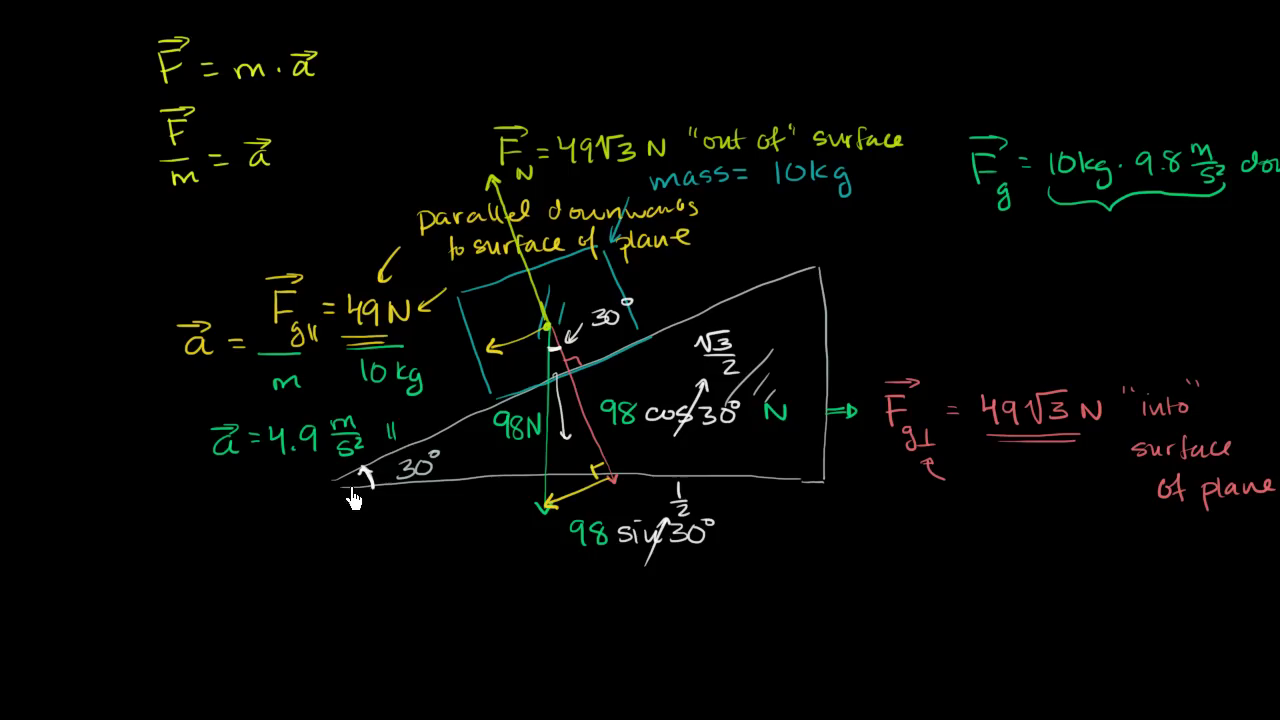 F⃗ = m · a⃗
F⃗/m = a⃗
F⃗_N = 49√3 N "out of" surface
mass = 10kg
F⃗_g = 10kg · 9.8 m/s²
parallel downwards
to surface of plane
a⃗ = F⃗_g∥/m = 49N/10 kg
a⃗ = 4.9 m/s² ∥
30°
30°
98N
√3/2
98 cos 30° N ⇒ F⃗_g⊥ = 49√3 N "into"
surface
of plane
1/2
98 sin 30°